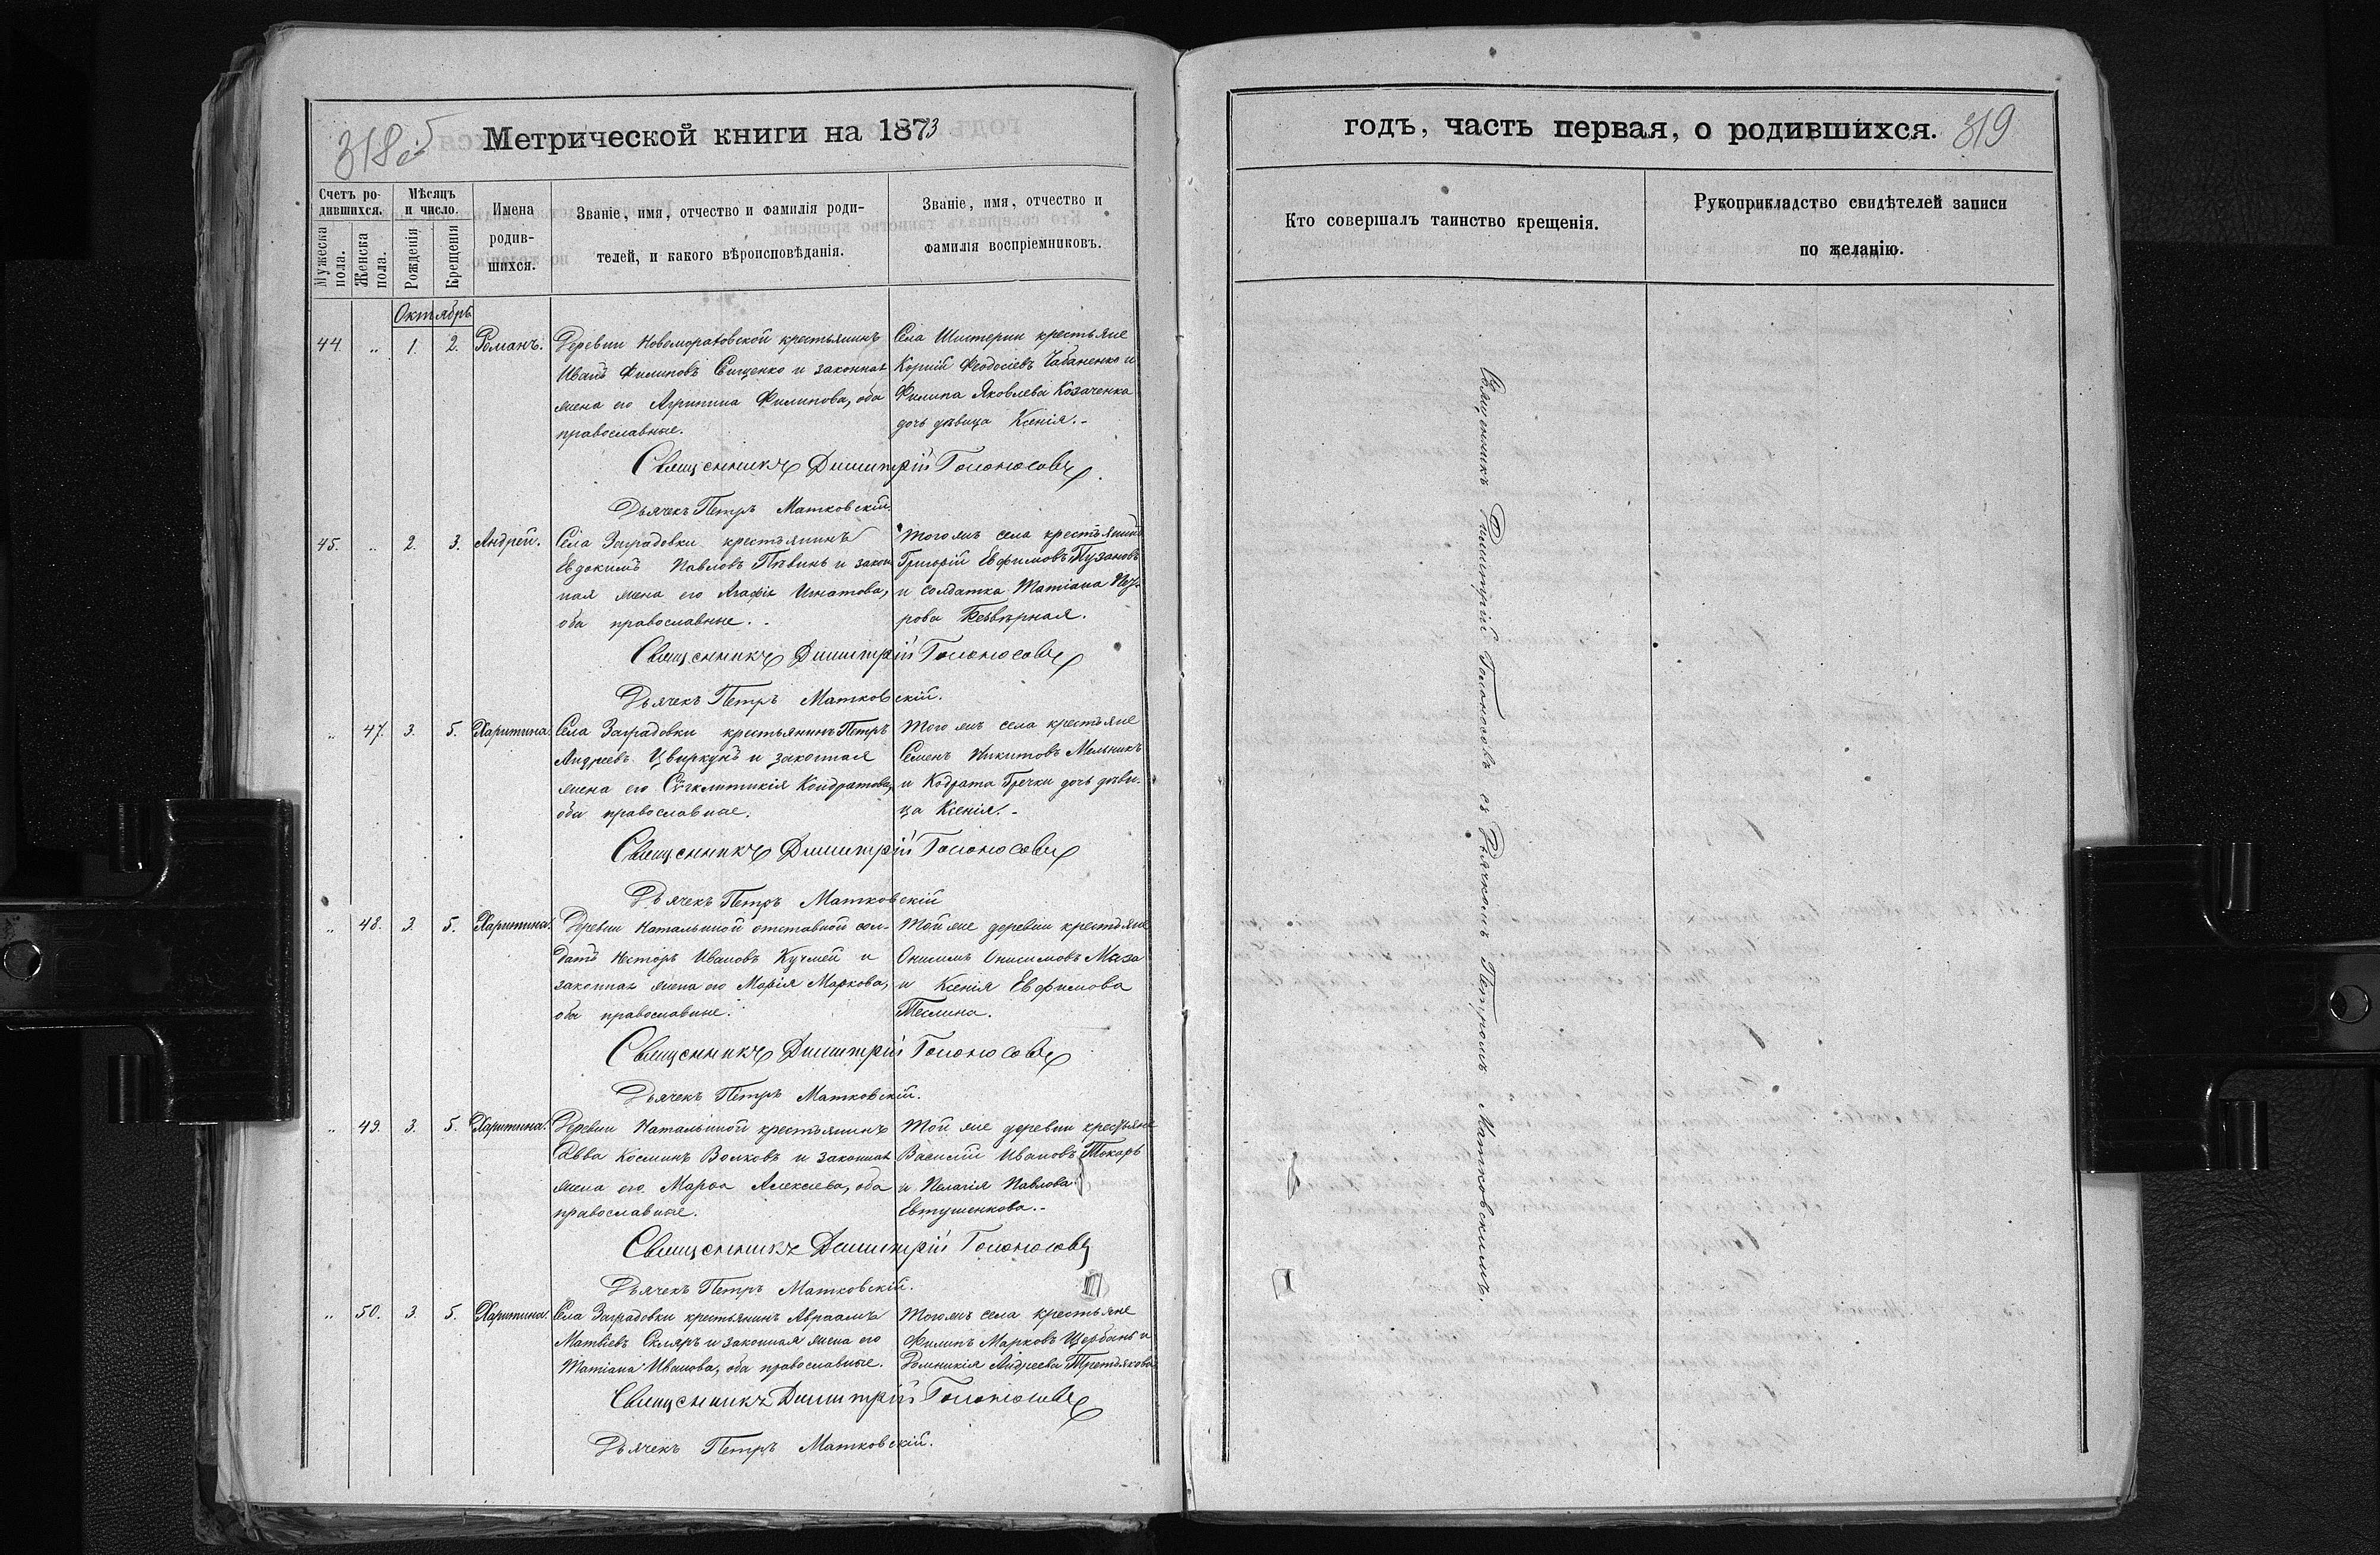 318 об
Метрической книги на 1873
Счетъ ро-
дившихся.
Мужеска
пола.
Женска
пола.
Мѣсяцъ
и число.
Рожденія
Крещенія
Имена
родив-
шихся.
Званіе, имя, отчество и фамилія роди-
телей, и какого вѣроисповѣданія.
Званіе, имя, отчество и
фамилія воспріемниковъ.
Октябрь
44. „ 1. 2. Романъ.
Деревни крестьянинъ
Иванъ Филиповъ Сищенко и законная
жена его Агрипина Филипова, оба
православные.
Села Шистерни крестьяне
Корній Феодосіевъ Чабаненко и
Филипа Яковлева Козаченка
дочь дѣвица Ксенія.-
Священникъ Димитрій Голоносовъ
Дьячекъ Петръ Матковскій.
45. „ 2. 3. Андрей.
Села Заградовки крестьянинъ
Евдокимъ Павловъ Пѣвинь и закон
ная жена его Агафія Игнатова,
оба православные.
Того жъ села крестьянинъ
Григорій Евфимовъ Пузановъ
и солдатка Татіана
рова Безвѣрная.
Священникъ Димитрій Голоносовъ
Дьячекъ Петръ Матковскій.
„ 47. 3. 5. Харитина.
Села Заградовки крестьянинъ Петръ
Андреевъ Цвиркунъ и законная
жена его Сѵгклитикія Кондратова,
оба православные.
Того жъ села крестьяне
Семенъ Никитовъ Мельникъ
и Кодрата Гречки дочь дѣви-
ца Ксенія.-
Священникъ Димитрій Голоносовъ
Дьячекъ Петръ Матковскій
„ 48. 3. 5. Харитина.
Деревни Натальиной отставной сол-
датъ Несторъ Ивановъ Кучмей и
законная жена его Марія Маркова,
оба православные.
Той же деревни крестьяне
Онисимъ Онисимовъ Маза
и Ксенія Евфимова
Теслина.
Священникъ Димитрій Голоносовъ
Дьячекъ Петръ Матковскій.
„ 49. 3. 5. Харитина.
Деревни Натальиной крестьянинъ
Савва Косминъ Волковъ и законная
жена его Марѳа Алексіева, оба
православные.
Той же деревни крестьяне
Василій Ивановъ Токарь
и Пелагія Павлова
Евтушенкова.-
Священникъ Димитрій Голоносовъ
Дьячекъ Петръ Матковскій.
„ 50. 3. 5. Харитина.
Села Заградовки крестьянинъ Авраамъ
Матвіевъ Скляръ и законная жена его
Татіана Иванова, оба православные.
Того жъ села крестьяне
Филипъ Марковъ Щербань и
Домникія Андреева Третьякова
Священникъ Димитрій Голоносовъ
Дьячекъ Петръ Матковскій.
годъ, часть первая, о родившихся.
319
Кто совершалъ таинство крещенія.
Рукоприкладство свидѣтелей записи
по желанію.
Священникъ Димитрій Голоносовъ съ Дьячкомъ Петромъ Матковскимъ.